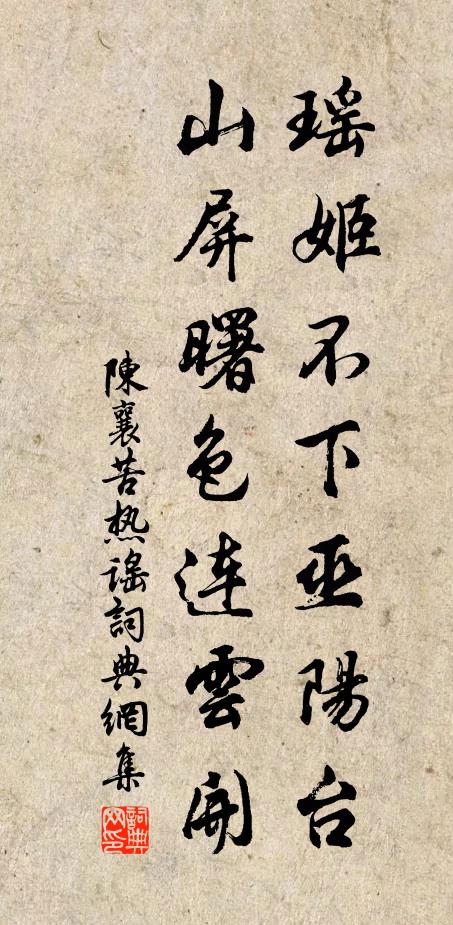 瑶姬不下巫陽台
山屏曙色連雲開
陳襄苦热謠詞典網集
詞典網印